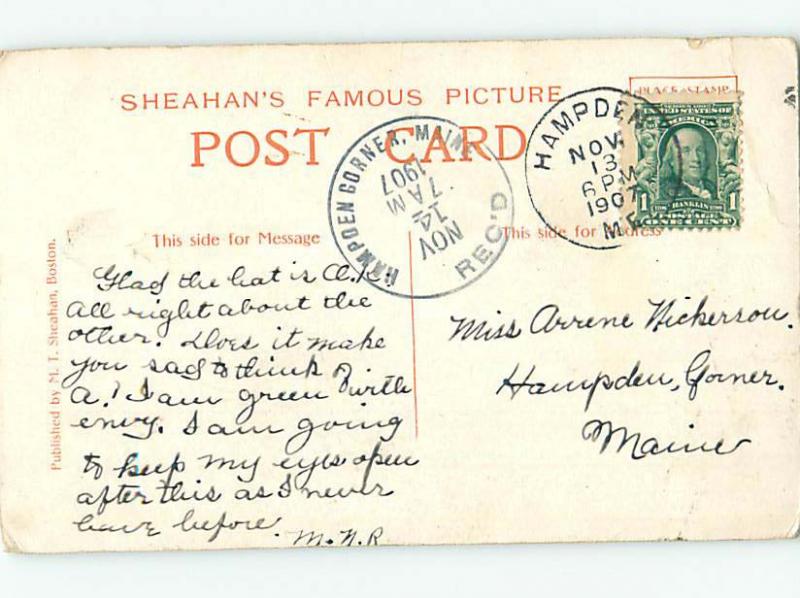 SHEAHAN'S FAMOUS PICTURE
POST CARD
PLACE STAMP
HAMPDEN
NOV
13
6 PM
1907
ME
UNITED STATES OF
AMERICA
1 FRANKLIN 1
HAMPDEN CORNER, MAINE
1907
7 AM
14
NOV
REC'D
This side for Message
This side for Address
Published by M. T. Sheahan, Boston.
Glad the hat is O.K.
All right about the
other. Does it make
you sad to think of
A.! I am green with
envy. I am going
to keep my eyes open
after this as I never
have before.
M.N.R
Miss Arrene Nickerson.
Hampden, Corner.
Maine